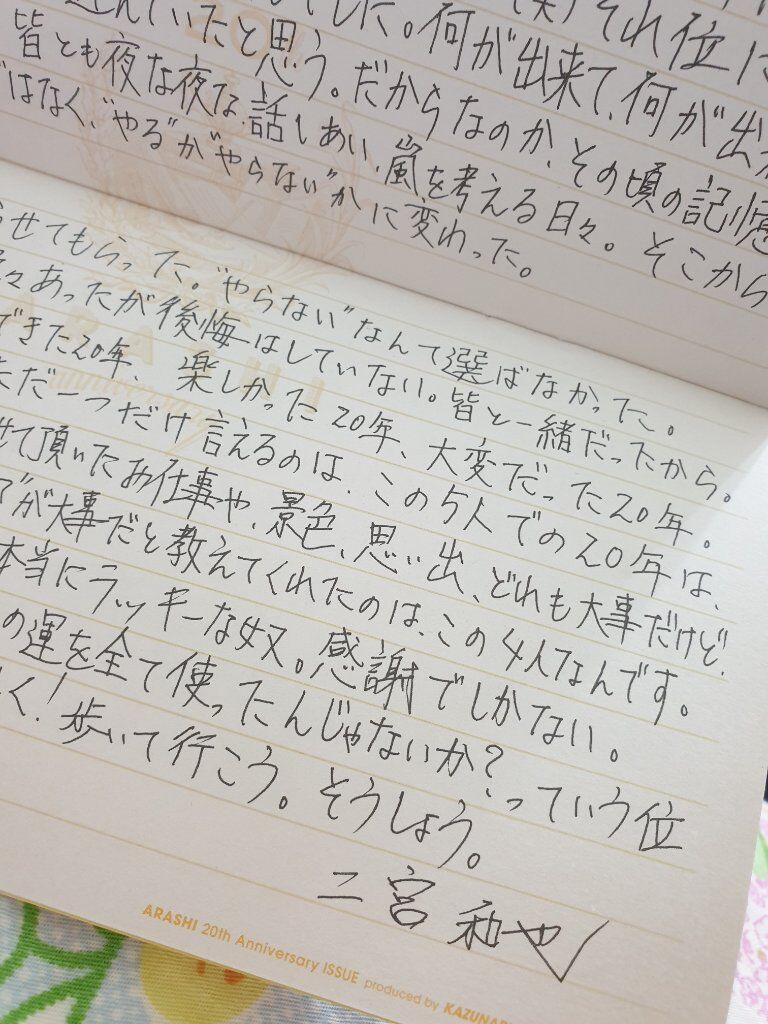 選んでいたと思う。だからなのか、その頃の記憶
でした。何が出来て、何が出
(笑)それ位に
皆とも夜な夜な、話しあい、嵐を考える日々。そこから
ではなく、"やる"か"やらない"かに変わった。
らせてもらった。"やらない"なんて選ばなかった。
々あったが後悔はしていない。皆と一緒だったから。
できた20年、楽しかった20年、大変だった20年。
ただ一つだけ言えるのは、この5人での20年は、
せて頂いたお仕事や、景色、思い出、どれも大事だけど、
が大事だと教えてくれたのは、この4人なんです。
本当にラッキーな奴。感謝でしかない。
の運を全て使ったんじゃないか?っていう位
く!歩いて行こう。そうしよう。
二宮和也
ARASHI 20th Anniversary ISSUE produced by